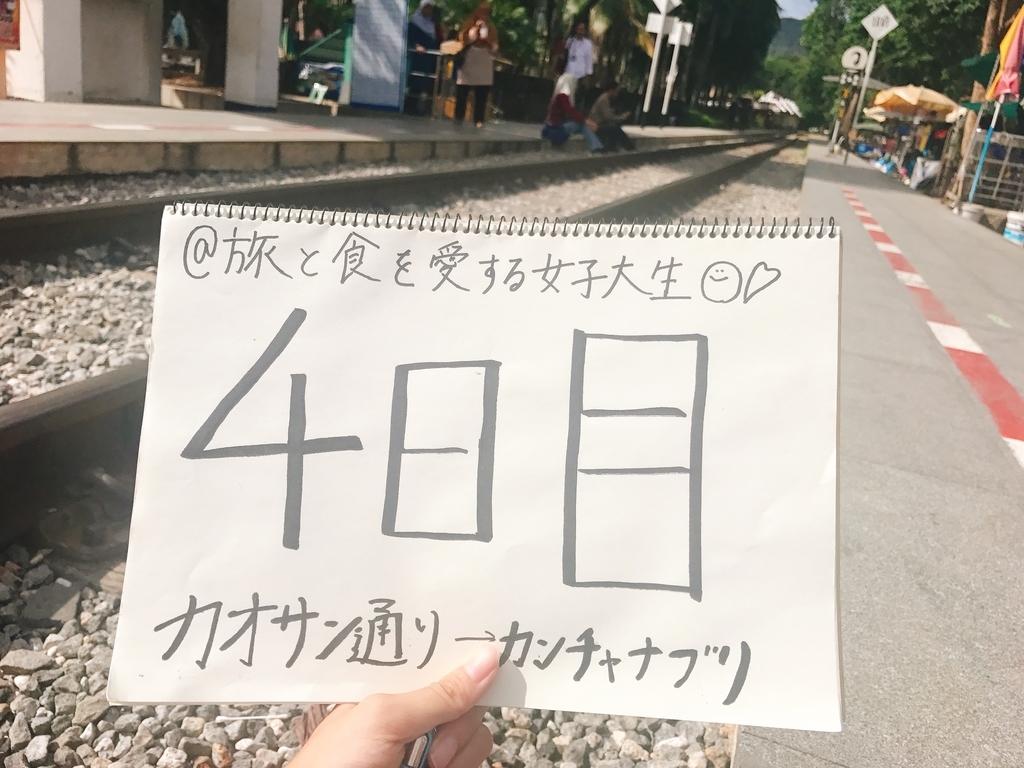 @旅と食を愛する女子大生
4日目
カオサン通り→カンチャナブリ